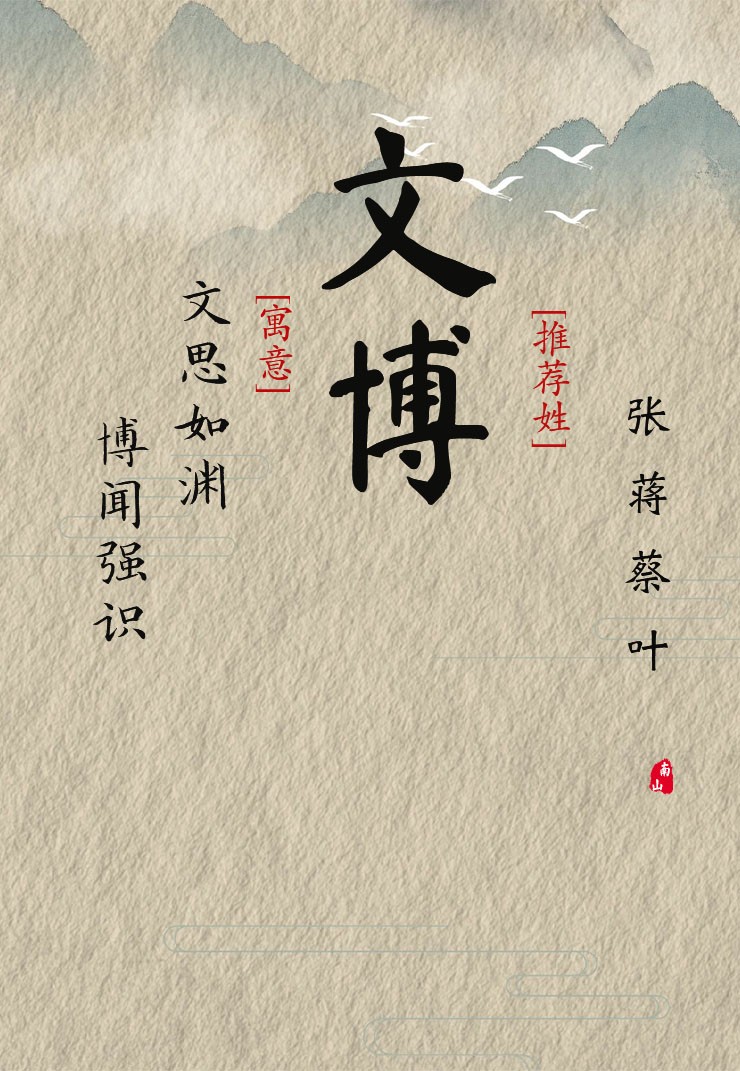 文博
[推荐姓]
张蒋蔡叶
[寓意]
文思如渊
博闻强识
南山